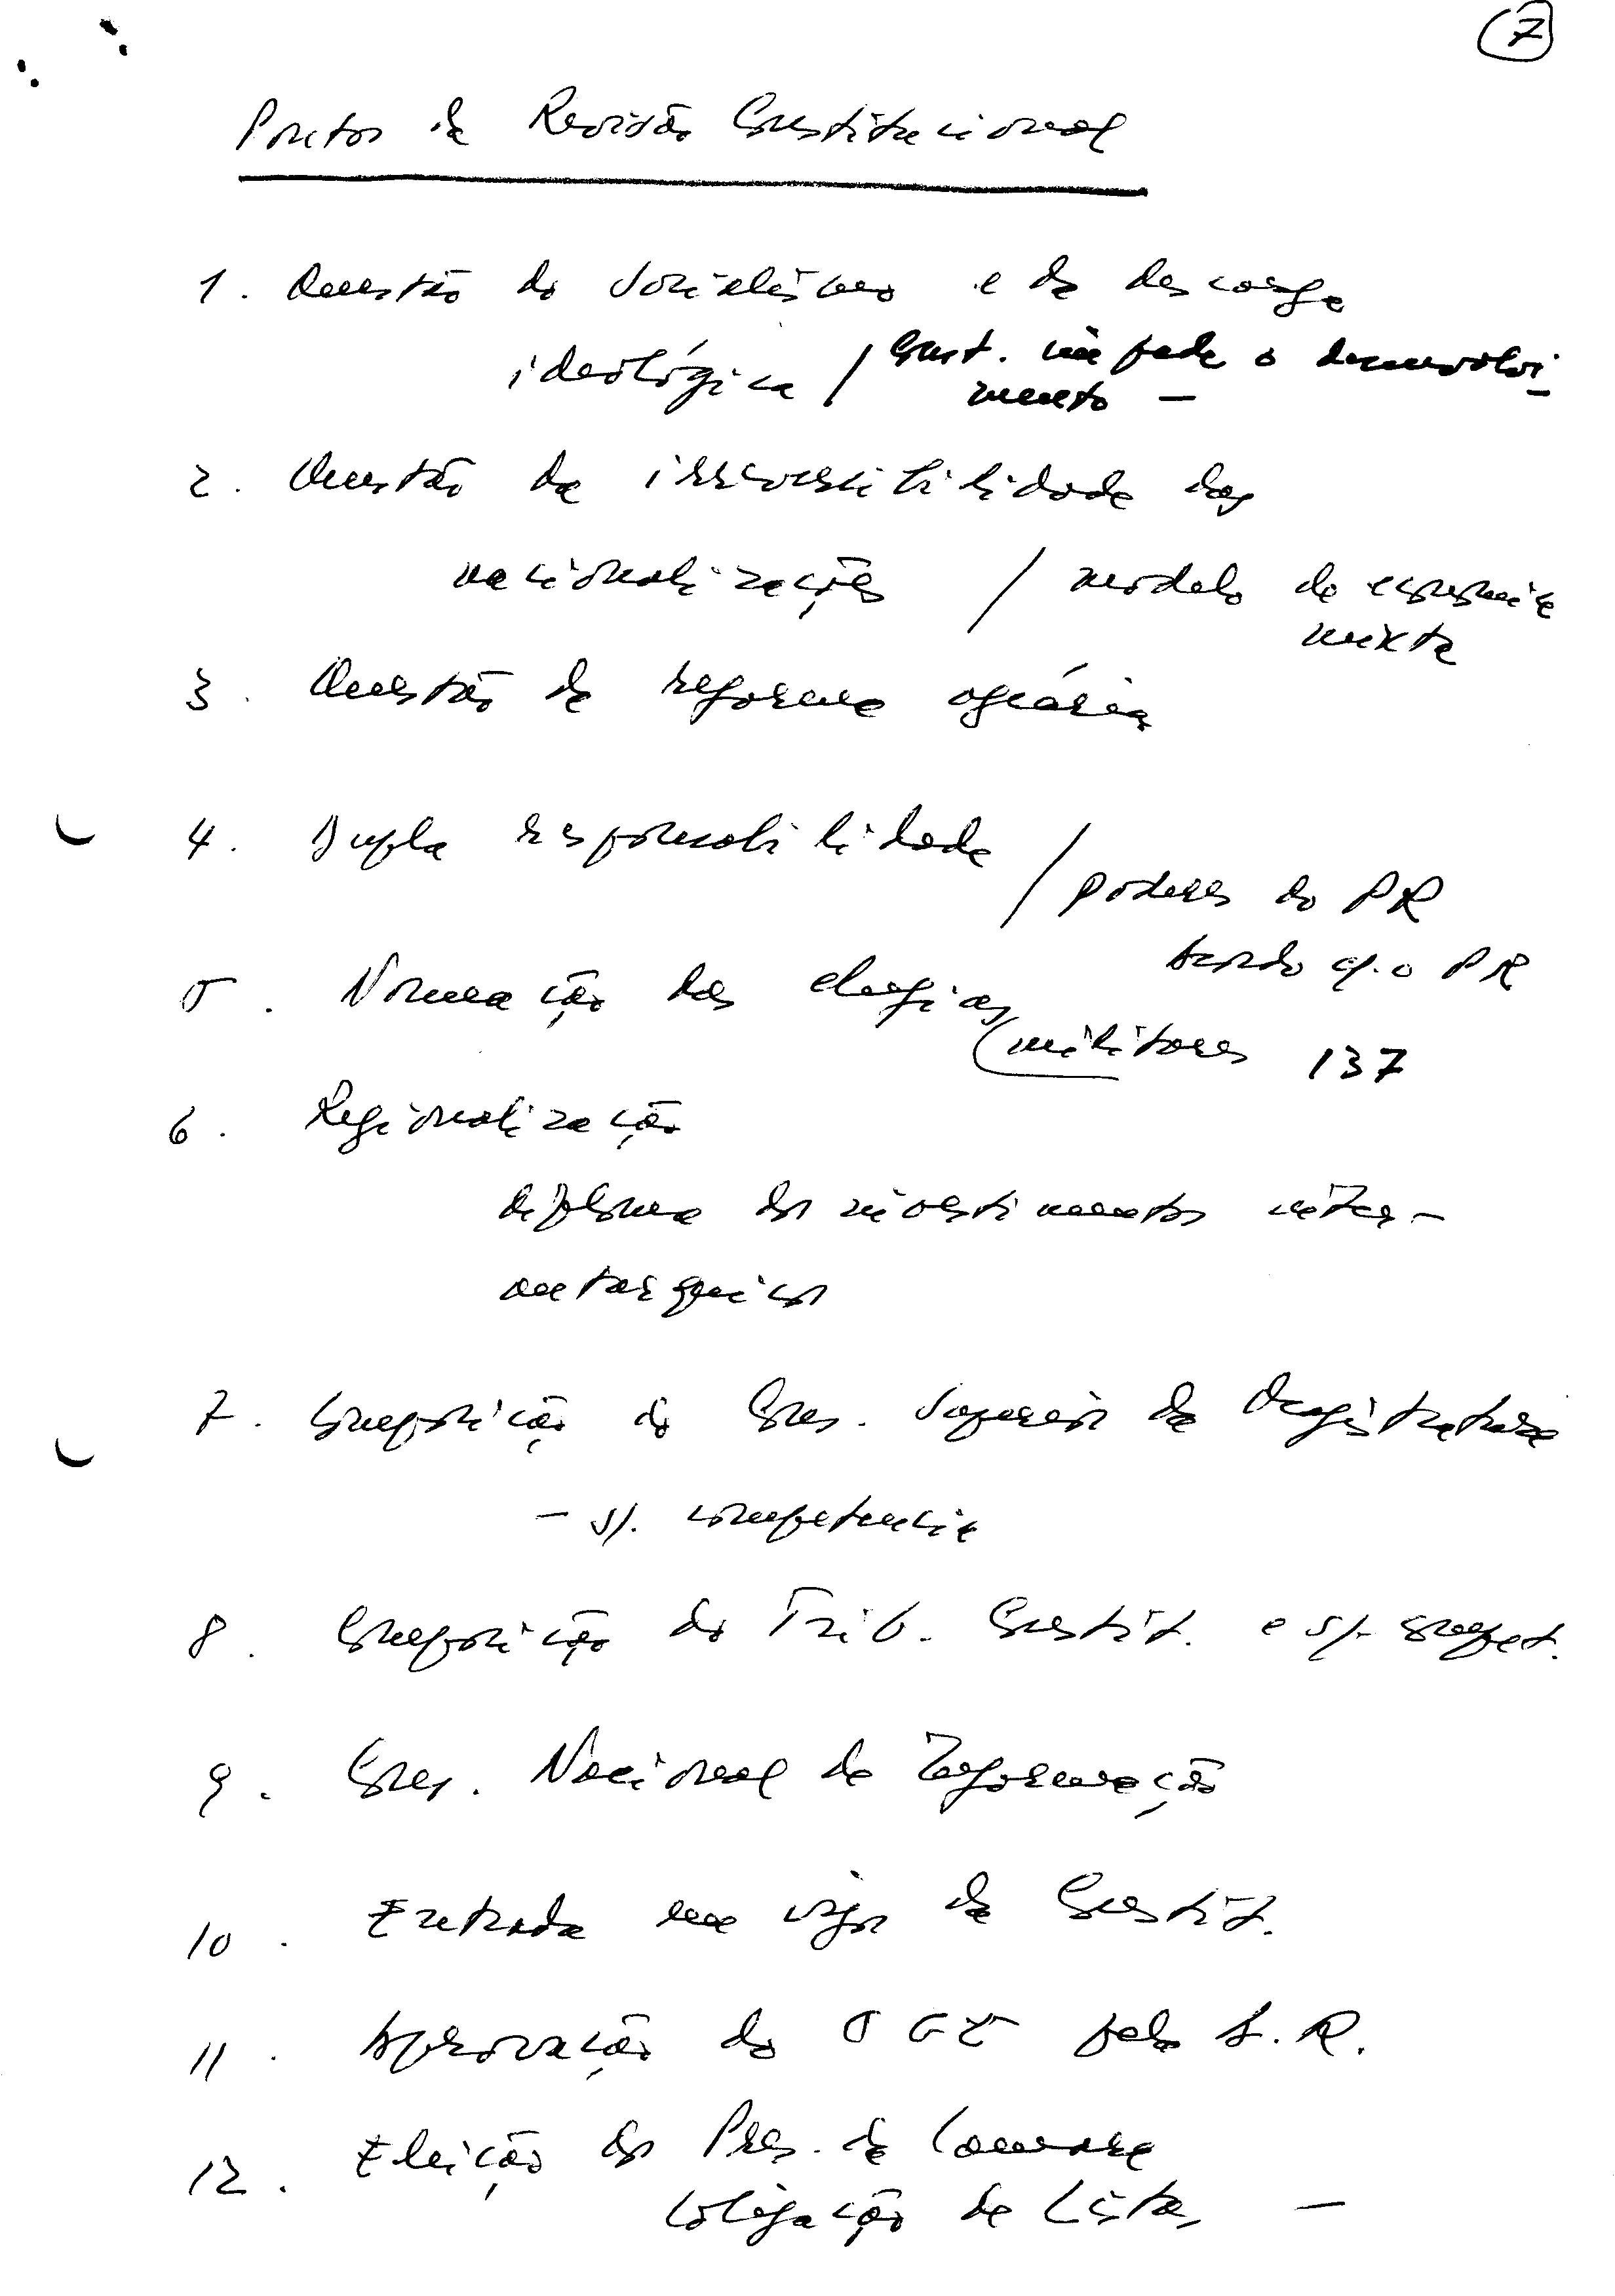 7
Pontos da Revisão Constitucional
1. Questão do Socialismo e da descarga
ideológica / Const. não pode o desenvolvi-
mento -
2. Questão da irreversibilidade das
nacionalizações / modelo de economia
mixta
3. Questão da reforma agrária
4. Dupla responsabilidade / poderes do PR
5. Nomeação das chefias militares 137
acordo c/. o PR
6. Regionalização
diploma dos investimentos inter-
autarquicos
7. Composição do Cons. Superior da Magistratura
- s/. competencia
8. Composição do Trib. Constit. e s/. compet.
9. Cons. Nacional de Informação
10. Entrada em vigor da Constit.
11. Aprovação do OGE pela A.R.
12. Eleição do Pres. da Camara
Coligação de Listas -